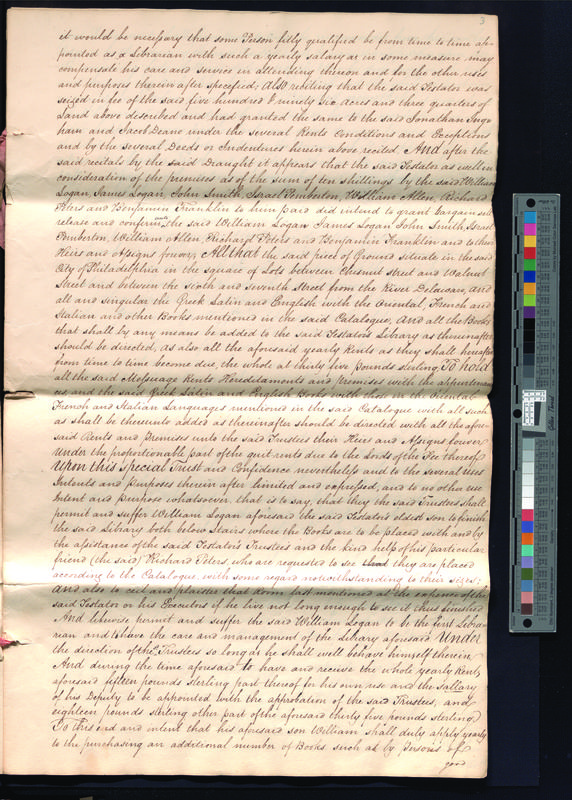 3
it would be necessary that some Person fitly qualified be from time to time ap-
pointed as a Librarian with such a yearly salary as in some measure may
compensate his care and service in attending thereon and for the other uses
and purposes therein after specefied; Also reciting that the said Testator was
seized in fee of the said five hundred & ninety six acres and three quarters of
Land above described and had granted the same to the said Jonathan Ingo
ham and Jacob Deane under the several Rents Conditions and Exceptions
and by the several Deeds or Indentures herein above recited And after the
said recitals by the said Draught it appears that the said Testator as well in
consideration of the premises as of the sum of ten shillings by the said William
Logan, James Logan, John Smith, Israel Pemberton, William Allen, Richard
Peters and Benjamin Franklin to him paid did intend to grant bargain sell
release and confirm unto the said William Logan James Logan John Smith, Israel
Pemberton, William Allen, Richard Peters and Benjamin Franklin and to their
Heirs and Assigns forever, All that the said piece of Ground situate in the said
City of Philadelphia in the square of Lots between Chesnut street and Walnut
Street and between the sixth and seventh Street from the River Delaware, and
all and singular the Greek Latin and English with the Oriental, French and
Italian and other Books mentioned in the said Catalogue, And all the Books
that shall by any means be added to the said Testators Library as thereinafter
should be directed, as also all the aforesaid yearly Rents as they shall hereafter
from time to time become due, the whole at thirty five pounds sterling, To hold
all the said Messuage Rents Hereditaments and premises with the appurtenan
ces and the said Greek Latin and English Books with those in the Oriental
French and Italian Languages mentioned in the said Catalogue with all such
as shall be thereunto added as thereinafter should be directed with all the afore-
said Rents and Premises unto the said Trustees their Heirs and Assigns forever
Under the proportionable part of the quit rents due to the Lords of the Fee thereof
Upon this special Trust and Confidence nevertheless and to the several uses
Intents and purposes therein after limited and expressed, and to no other use
Intent and purpose whatsoever, that is to say, that they the said Trustees shall
permit and suffer William Logan aforesaid the said Testator's oldest son to finish
the said Library both below Stairs where the Books are to be placed with and by
the assistance of the said Testators Trustees and the kind help of his particular
friend (the said) Richard Peters, who are requested to see they are placed
according to the Catalogue, with some regard notwithstanding to their sizes;
And also to ceil and plaister that Room last mentioned at the expense of the
said Testator or his Executors if he live not long enough to see it thus finished
And likewise permit and suffer the said William Logan to be the first Libra-
rian and to have the care and management of the Library aforesaid Under
the direction of the Trustees so long as he shall well behave himself therein
And during the time aforesaid to have and receive the whole yearly Rent
aforesaid fifteen pounds sterling part thereof for his own use and the sallary
of his Deputy to be appointed with the approbation of the said Trustees; and
eighteen pounds sterling other part of the aforesaid thirty five pounds sterling
To this end and intent that his aforesaid son William shall duly apply yearly
to the purchasing an additional number of Books such as by Persons of
good